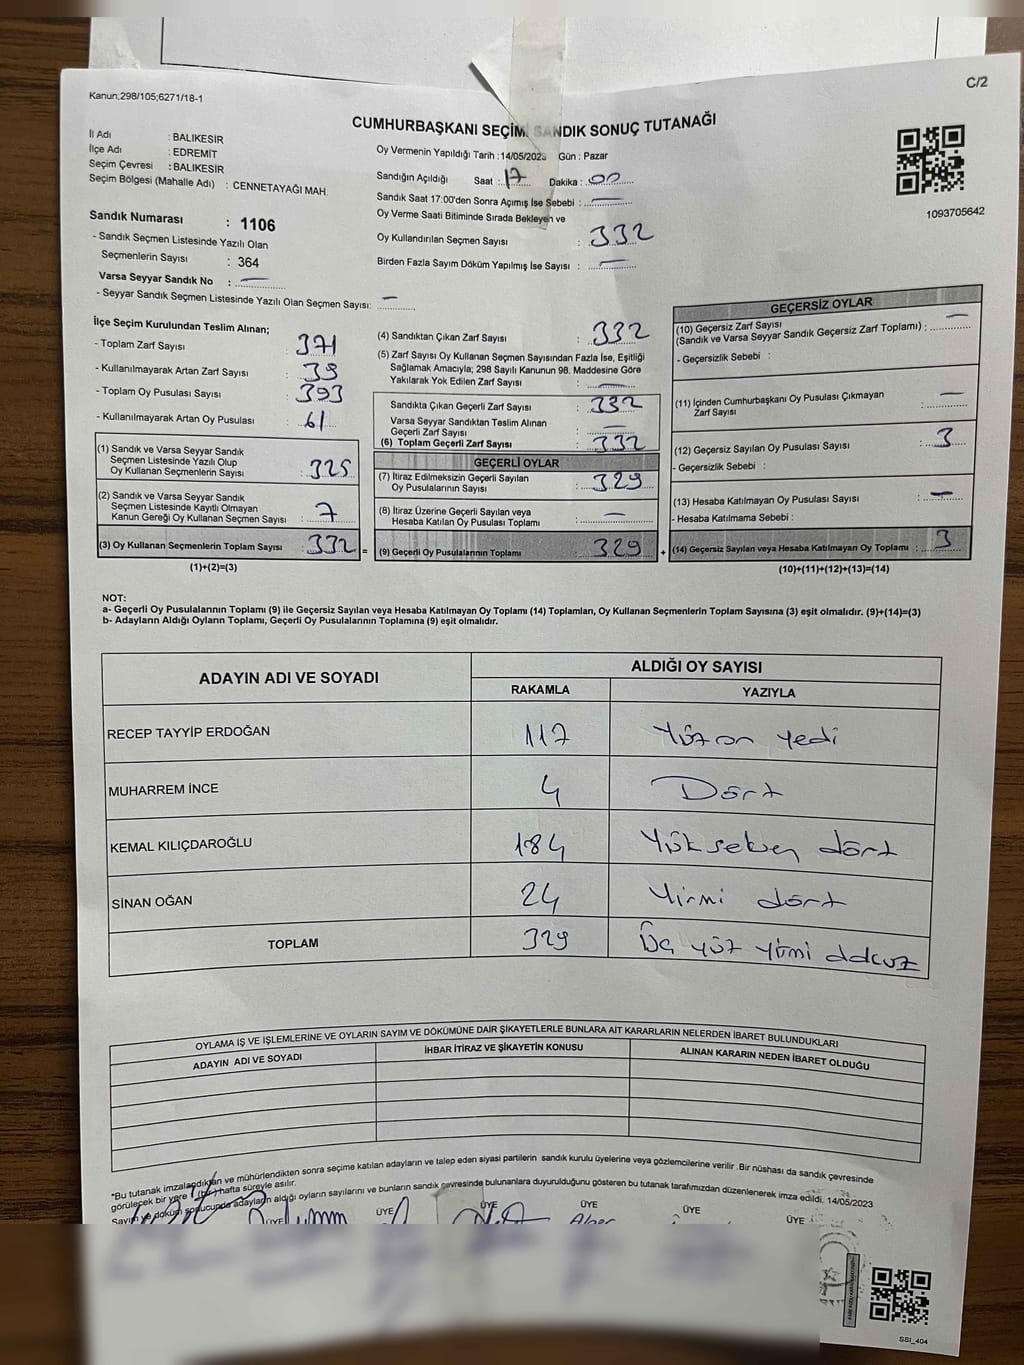 C/2
Kanun;298/105;6271/18-1
CUMHURBAŞKANI SEÇİMİ SANDIK SONUÇ TUTANAĞI
İl Adı : BALIKESİR
İlçe Adı : EDREMİT
Seçim Çevresi : BALIKESİR
Seçim Bölgesi (Mahalle Adı) : CENNETAYAĞI MAH.
Sandık Numarası : 1106
- Sandık Seçmen Listesinde Yazılı Olan
Seçmenlerin Sayısı : 364
Varsa Seyyar Sandık No : —
- Seyyar Sandık Seçmen Listesinde Yazılı Olan Seçmen Sayısı: —
Oy Vermenin Yapıldığı Tarih : 14/05/2023 Gün : Pazar
Sandığın Açıldığı Saat : 17 Dakika : 00
Sandık Saat 17:00'den Sonra Açımış İse Sebebi : —
Oy Verme Saati Bitiminde Sırada Bekleyen ve
Oy Kullandırılan Seçmen Sayısı : 332
Birden Fazla Sayım Döküm Yapılmış İse Sayısı : —
1093705642
İlçe Seçim Kurulundan Teslim Alınan;
- Toplam Zarf Sayısı : 371
- Kullanılmayarak Artan Zarf Sayısı : 39
- Toplam Oy Pusulası Sayısı : 393
- Kullanılmayarak Artan Oy Pusulası : 61
(1) Sandık ve Varsa Seyyar Sandık
Seçmen Listesinde Yazılı Olup
Oy Kullanan Seçmenlerin Sayısı : 325
(2) Sandık ve Varsa Seyyar Sandık
Seçmen Listesinde Kayıtlı Olmayan
Kanun Gereği Oy Kullanan Seçmen Sayısı : 7
(3) Oy Kullanan Seçmenlerin Toplam Sayısı : 332 =
(1)+(2)=(3)
(4) Sandıktan Çıkan Zarf Sayısı : 332
(5) Zarf Sayısı Oy Kullanan Seçmen Sayısından Fazla İse, Eşitliği
Sağlamak Amacıyla; 298 Sayılı Kanunun 98. Maddesine Göre
Yakılarak Yok Edilen Zarf Sayısı : —
Sandıkta Çıkan Geçerli Zarf Sayısı : 332
Varsa Seyyar Sandıktan Teslim Alınan
Geçerli Zarf Sayısı : —
(6) Toplam Geçerli Zarf Sayısı : 332
GEÇERLİ OYLAR
(7) İtiraz Edilmeksizin Geçerli Sayılan
Oy Pusulalarının Sayısı : 329
(8) İtiraz Üzerine Geçerli Sayılan veya
Hesaba Katılan Oy Pusulası Toplamı : —
(9) Geçerli Oy Pusulalarının Toplamı : 329 +
GEÇERSİZ OYLAR
(10) Geçersiz Zarf Sayısı
(Sandık ve Varsa Seyyar Sandık Geçersiz Zarf Toplamı) : —
- Geçersizlik Sebebi :
(11) İçinden Cumhurbaşkanı Oy Pusulası Çıkmayan
Zarf Sayısı : —
(12) Geçersiz Sayılan Oy Pusulası Sayısı : 3
- Geçersizlik Sebebi :
(13) Hesaba Katılmayan Oy Pusulası Sayısı : —
- Hesaba Katılmama Sebebi :
(14) Geçersiz Sayılan veya Hesaba Katılmayan Oy Toplamı : 3
(10)+(11)+(12)+(13)=(14)
NOT:
a- Geçerli Oy Pusulalarının Toplamı (9) ile Geçersiz Sayılan veya Hesaba Katılmayan Oy Toplamı (14) Toplamları, Oy Kullanan Seçmenlerin Toplam Sayısına (3) eşit olmalıdır. (9)+(14)=(3)
b- Adayların Aldığı Oyların Toplamı, Geçerli Oy Pusulalarının Toplamına (9) eşit olmalıdır.
ADAYIN ADI VE SOYADI ALDIĞI OY SAYISI
RAKAMLA YAZIYLA
RECEP TAYYİP ERDOĞAN 117 Yüz on yedi
MUHARREM İNCE 4 Dört
KEMAL KILIÇDAROĞLU 184 Yükseksen dört
SİNAN OĞAN 24 Yirmi dört
TOPLAM 329 Üç yüz yirmi dokuz
OYLAMA İŞ VE İŞLEMLERİNE VE OYLARIN SAYIM VE DÖKÜMÜNE DAİR ŞİKAYETLERLE BUNLARA AİT KARARLARIN NELERDEN İBARET BULUNDUKLARI
ADAYIN ADI VE SOYADI İHBAR İTİRAZ VE ŞİKAYETİN KONUSU ALINAN KARARIN NEDEN İBARET OLDUĞU
*Bu tutanak imzalandıktan ve mühürlendikten sonra seçime katılan adayların ve talep eden siyasi partilerin sandık kurulu üyelerine veya gözlemcilerine verilir .Bir nüshası da sandık çevresinde
görülecek bir yere 1 (bir) hafta süreyle asılır.
Sayım ve döküm sonucunda adayların aldığı oyların sayılarını ve bunların sandık çevresinde bulunanlara duyurulduğunu gösteren bu tutanak tarafımızdan düzenlenerek imza edildi. 14/05/2023
ÜYE ÜYE ÜYE ÜYE ÜYE ÜYE
SSI_404